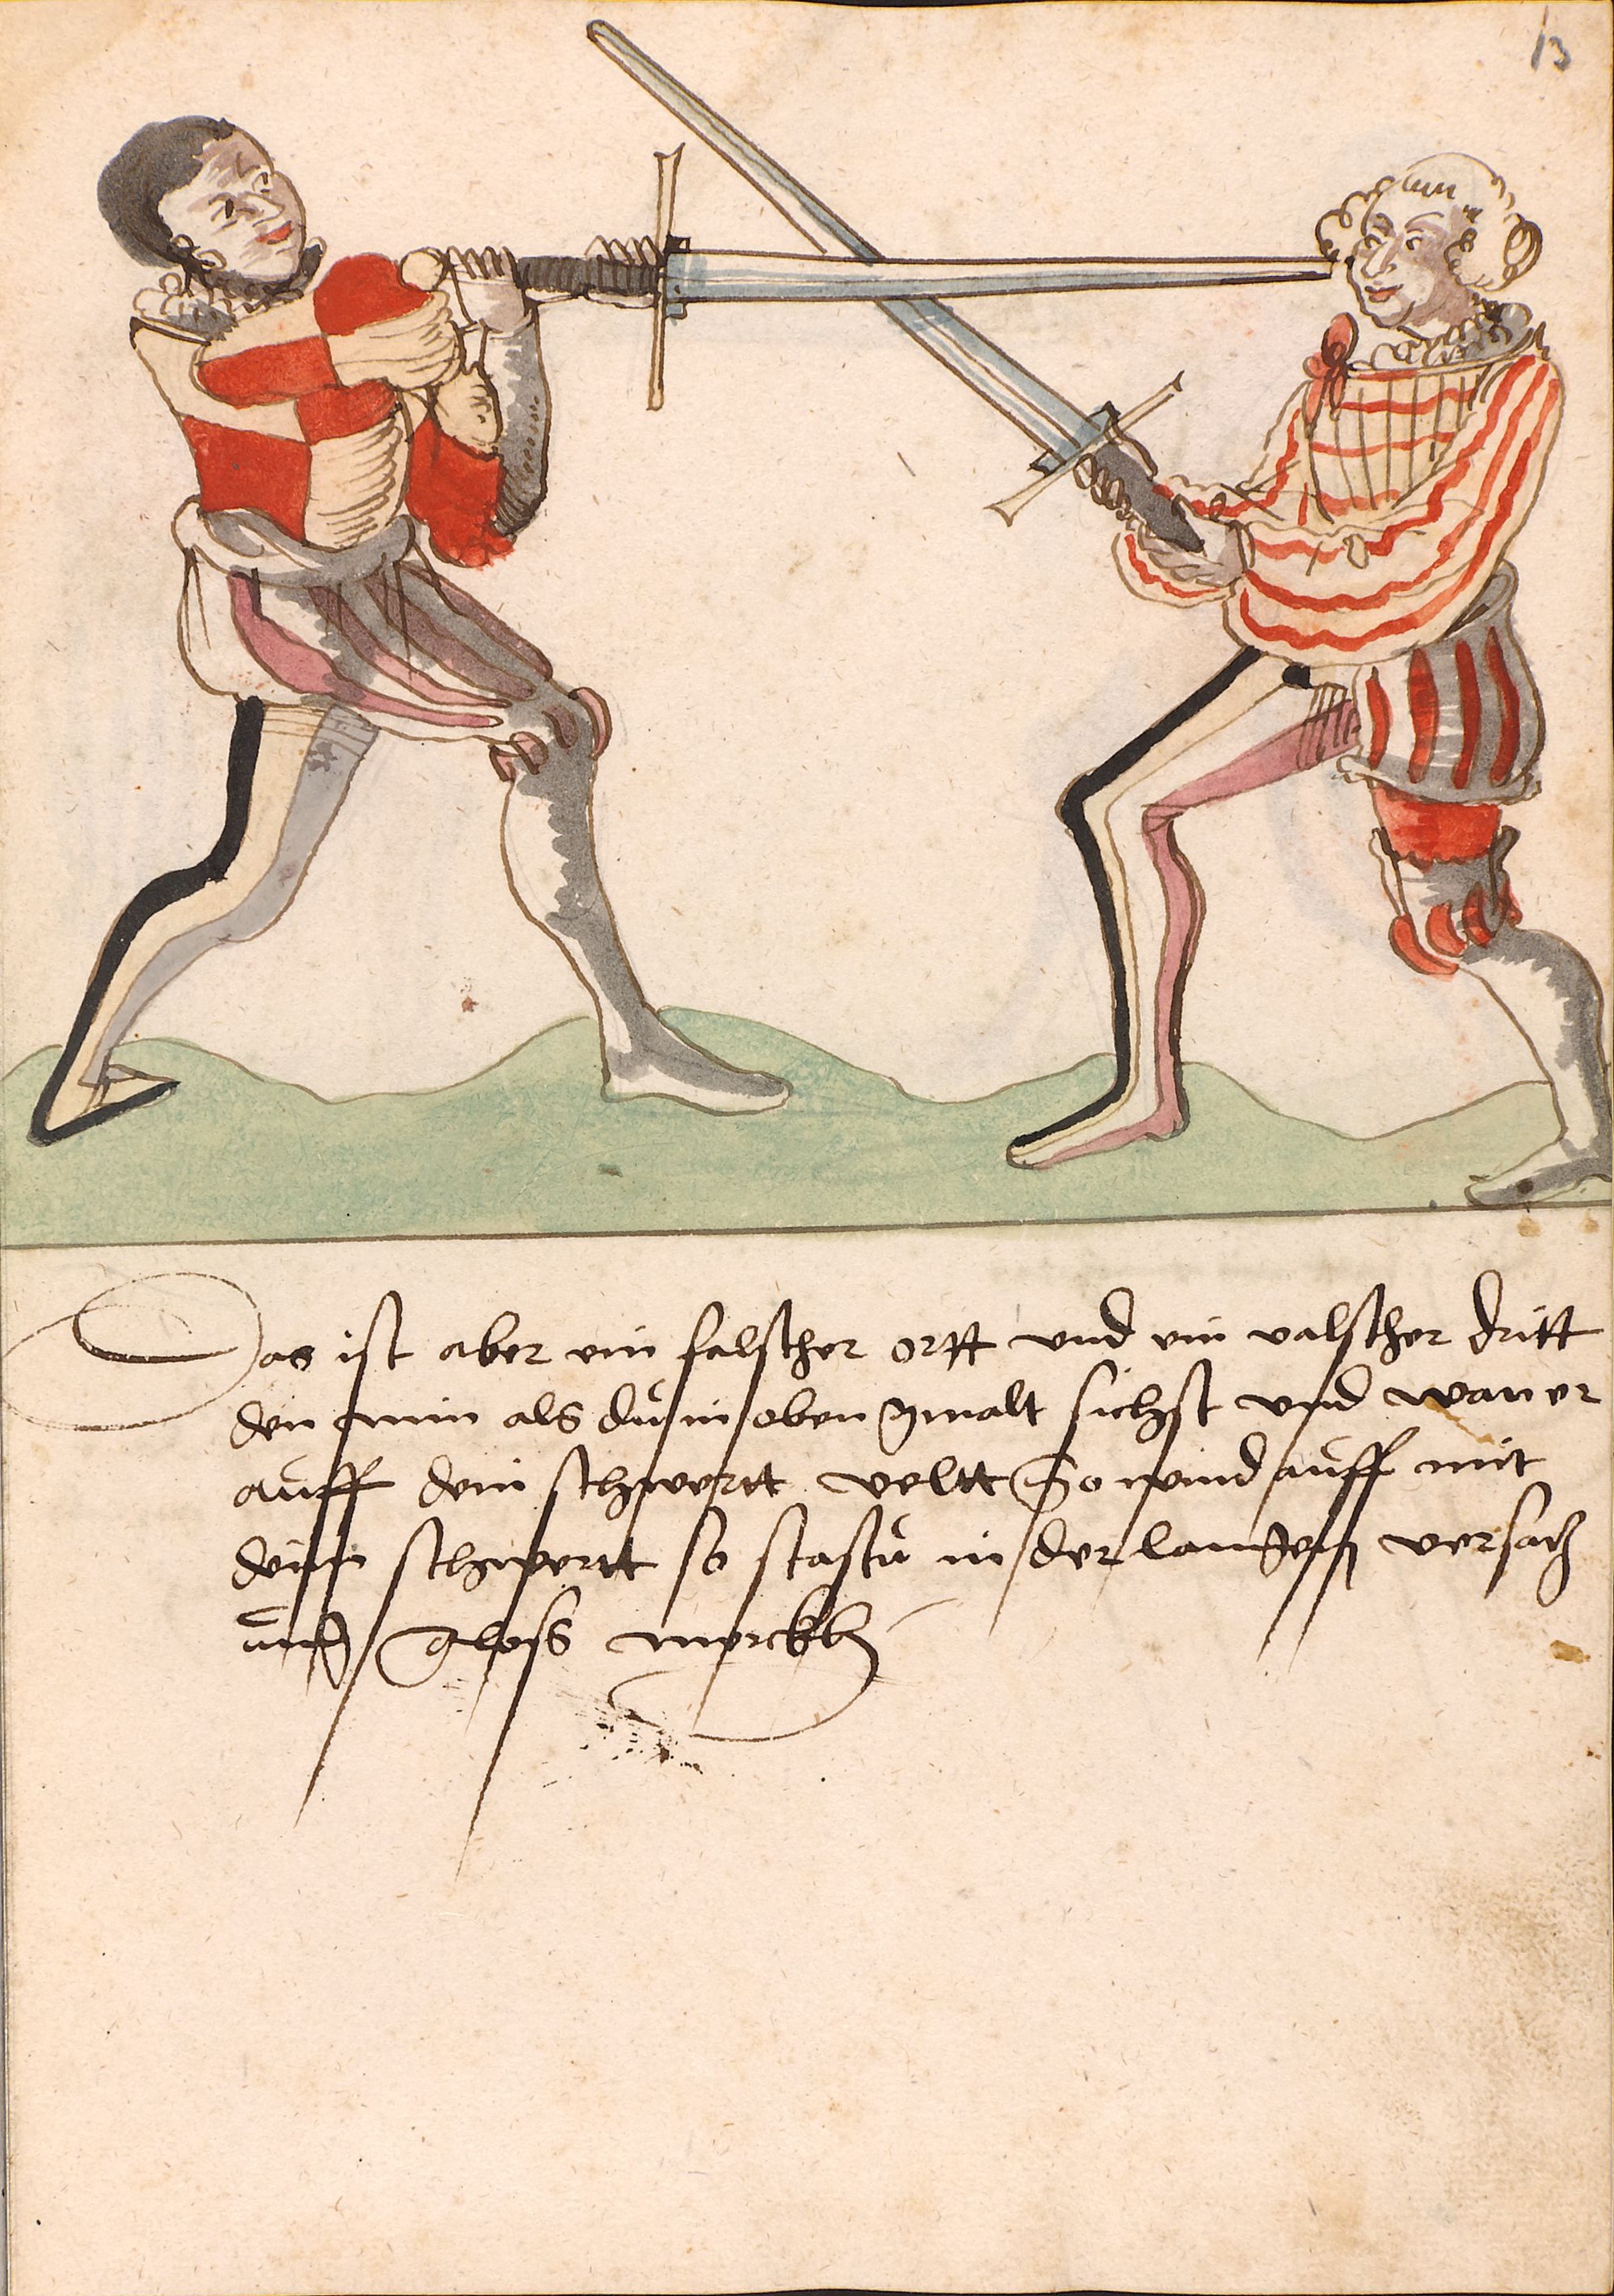 13
Das ist aber ein falscher ortt vnd ein valscher dritt
den nim als du in oben gmalt sichst vnd wan er
auff dein schwertt veltt So wind auff mit
deim schwertt so stastu in der langen versatz
vnd gloss merckh